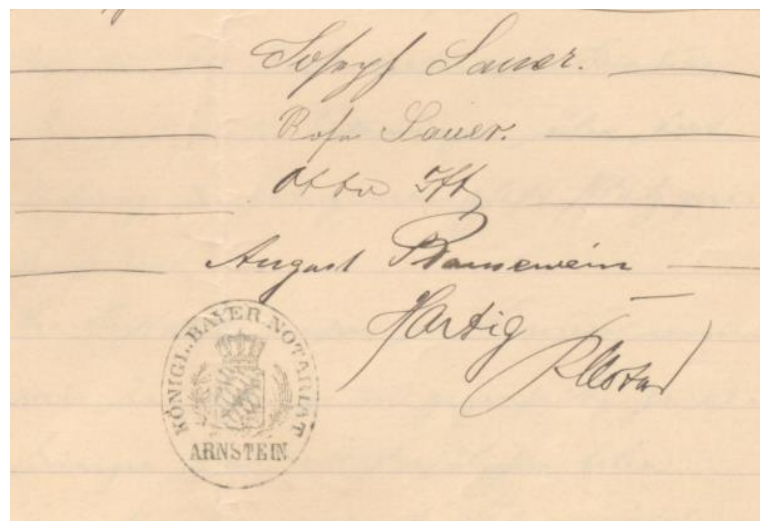 Joseph Sauer.
Rosa Sauer.
Otto
August Bausewein
Hartig
KÖNIGL. BAYER NOTARIAT
ARNSTEIN